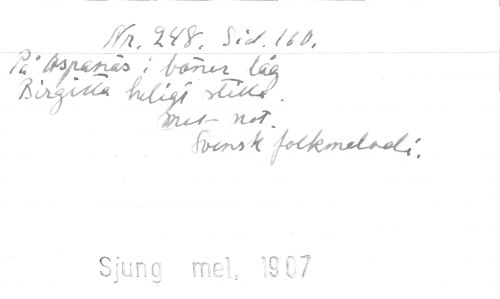 Nr. 248. Sid. 160.
På Aspanäs i böner låg
Birgitta heligt stilla.
met not.
Svensk folkmelodi.
Sjung mel. 1907